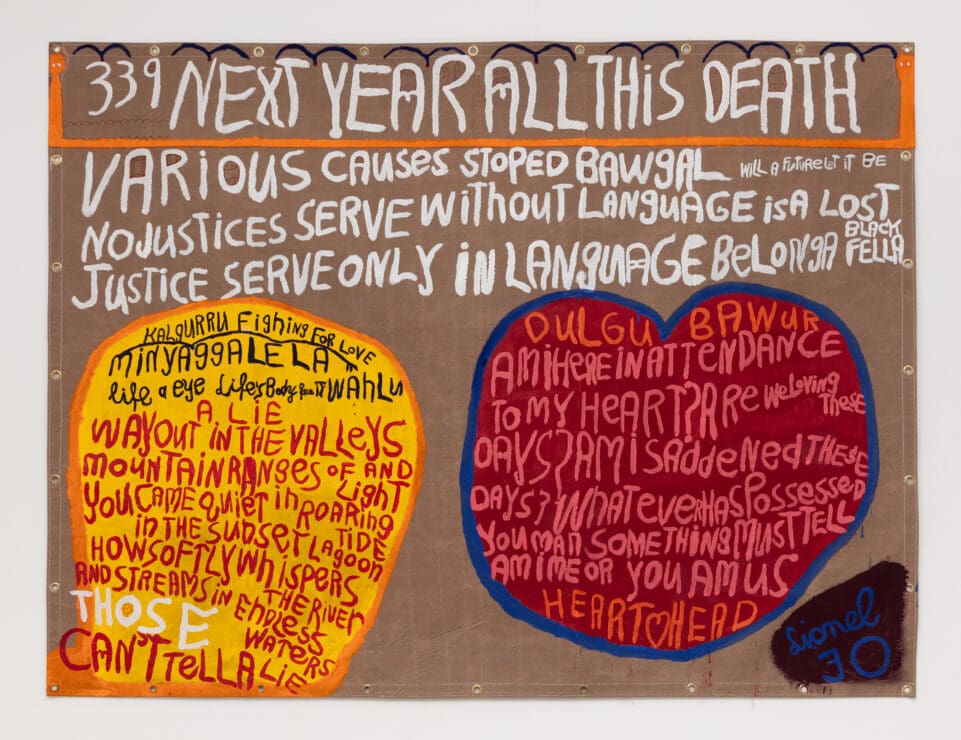 339 NEXT YEAR ALL THiS DEATH
VARiOUS CAUSES STOPED BAWgAL WiLL A FUTURE LET iT BE
NOJUSTiCES SERVE WiThOUT LANGUAGE iS A LOST
JUSTiCE SERVE ONLY iN LANGUAGE BeLONgA BLACK FELLA
KALgURRU Fighing FOR LOVE
MiNYAggALELA
life a eye Lifes Body WAhLU
A LiE
WAYOUT iN THE VALLeYS
MOUNTAiN RANgES OF AND
YOU CAME QUieT in ROARiNg Light
iN THE SUNSeT LAgOON TiDE
HOW SOFTLY WhiSPERS
AND STREAMS iN THE RiVER
ENdLESS WATERS
THOSE
CAN'T TELLA LiE
DULGU BAWUR
AMiHERE iN ATTENDANCE
To MY HeART? ARe We LOVing These
DAYS? AM i SAddeNed THESE
DAYS? WHATeVeR HAS POSSeSSed
YOU MAN SOMETHiNg MUST TELL
AM iME OR YOU AM US
HEART HEAD
Lionel
30